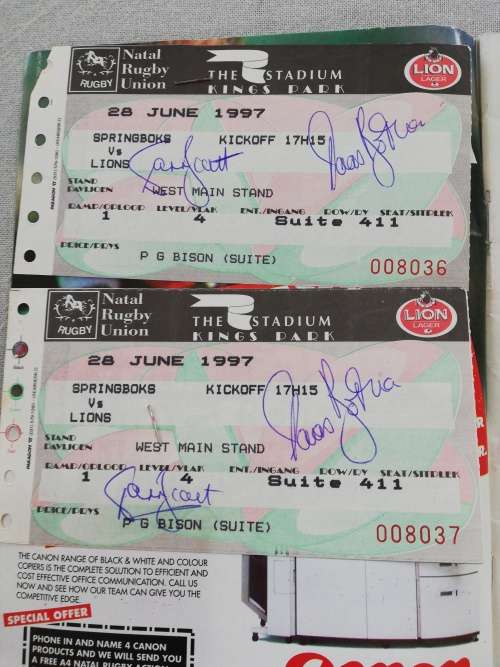 Natal
Rugby
Union
RUGBY
THE STADIUM
KINGS PARK
LION
LAGER
28 JUNE 1997
SPRINGBOKS KICKOFF 17H15
Vs
LIONS
STAND
PAVILJOEN
WEST MAIN STAND
RAMP/OPLOOP LEVEL/VLAK ENT./INGANG ROW/RY SEAT/SITPLEK
1 4 Suite 411
PRICE/PRYS
P G BISON (SUITE)
008036
Natal
Rugby
Union
RUGBY
THE STADIUM
KINGS PARK
LION
LAGER
28 JUNE 1997
SPRINGBOKS KICKOFF 17H15
Vs
LIONS
STAND
PAVILJOEN
WEST MAIN STAND
RAMP/OPLOOP LEVEL/VLAK ENT./INGANG ROW/RY SEAT/SITPLEK
1 4 Suite 411
PRICE/PRYS
P G BISON (SUITE)
008037
THE CANON RANGE OF BLACK & WHITE AND COLOUR
COPIERS IS THE COMPLETE SOLUTION TO EFFICIENT AND
COST EFFECTIVE OFFICE COMMUNICATION. CALL US
NOW AND SEE HOW OUR TEAM CAN GIVE YOU THE
COMPETITIVE EDGE.
SPECIAL OFFER
PHONE IN AND NAME 4 CANON
PRODUCTS AND WE WILL SEND YOU
A FREE A4 NATAL RUGBY ACTION
Canon